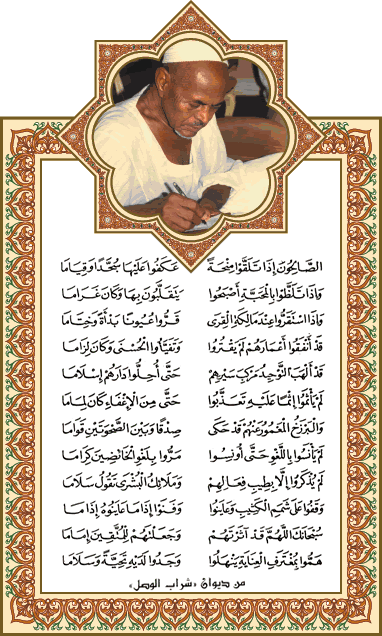 الصَّالِحُونَ إِذَا تَلَقَّوْا مِنْحَةً عَكَفُوا عَلَيْهَا سُجَّدًا وَقِيَامَا
وَإِذَا تَلَظَّوْا بِالْمَحَبَّةِ أَصْبَحُوا يَتَقَلَّبُونَ بِهَا وَكَانَ غَرَامَا
وَإِذَا اسْتَقَرُّوا عِنْدَ مَالِكَةِ الْقِرَى قَرُّوا عُيُونًا بَدْأَةً وَخِتَامَا
قَدْ أَنْفَقُوا أَعْمَارَهُمْ لَمْ يَقْتُرُوا وَتَفَيَّأُوا الْحُسْنَى وَكَانَ لِزَامَا
قَدْ أَلْهَبَ التَّوْحِيدُ مَرْكَبَ سَيْرِهِمْ حَتَّى أُحِلُّوا دَارَهُمْ إِسْلَامَا
لَمْ يَأْلَفُوا إِثْمًا عَلَيْهِ تَعَذَّبُوا حَتَّى مِنَ الْإِغْفَاءِ كَانَ لِمَامَا
وَالْبَرْزَخُ الْمَعْمُورُ مِنْهُمْ قَدْ حَكَى صِدْقًا وَبَيْنَ الضَّحْوَتَيْنِ قَوَامَا
لَمْ يَأْنَسُوا بِاللَّغْوِ حَتَّى أُونِسُوا مَرُّوا بِلَغْوِ الْخَائِضِينَ كِرَامَا
لَمْ يُذْكَرُوا إِلَّا بِطِيبِ فِعَالِهِمْ وَمَلَائِكُ الْبُشْرَى تَقُولُ سَلَامَا
وَقَفُوا عَلَى شَمَمِ الْكَثِيبِ وَعَايَنُوا وَفَنَوْا إِذَا مَا عَايَنُوهُ إِذَا مَا
سُبْحَانَكَ اللَّهُمَّ قَدْ آثَرْتَهُمْ وَجَعَلْتَهُمْ لِلْمُتَّقِينَ إِمَامَا
هَمُّوا بِمُغْتَرَفِ الْعِنَايَةِ يَنْهَلُوا وَجَدُوا لَدَيْهِ تَحِيَّةً وَسَلَامَا
من ديوان «شراب الوصل»